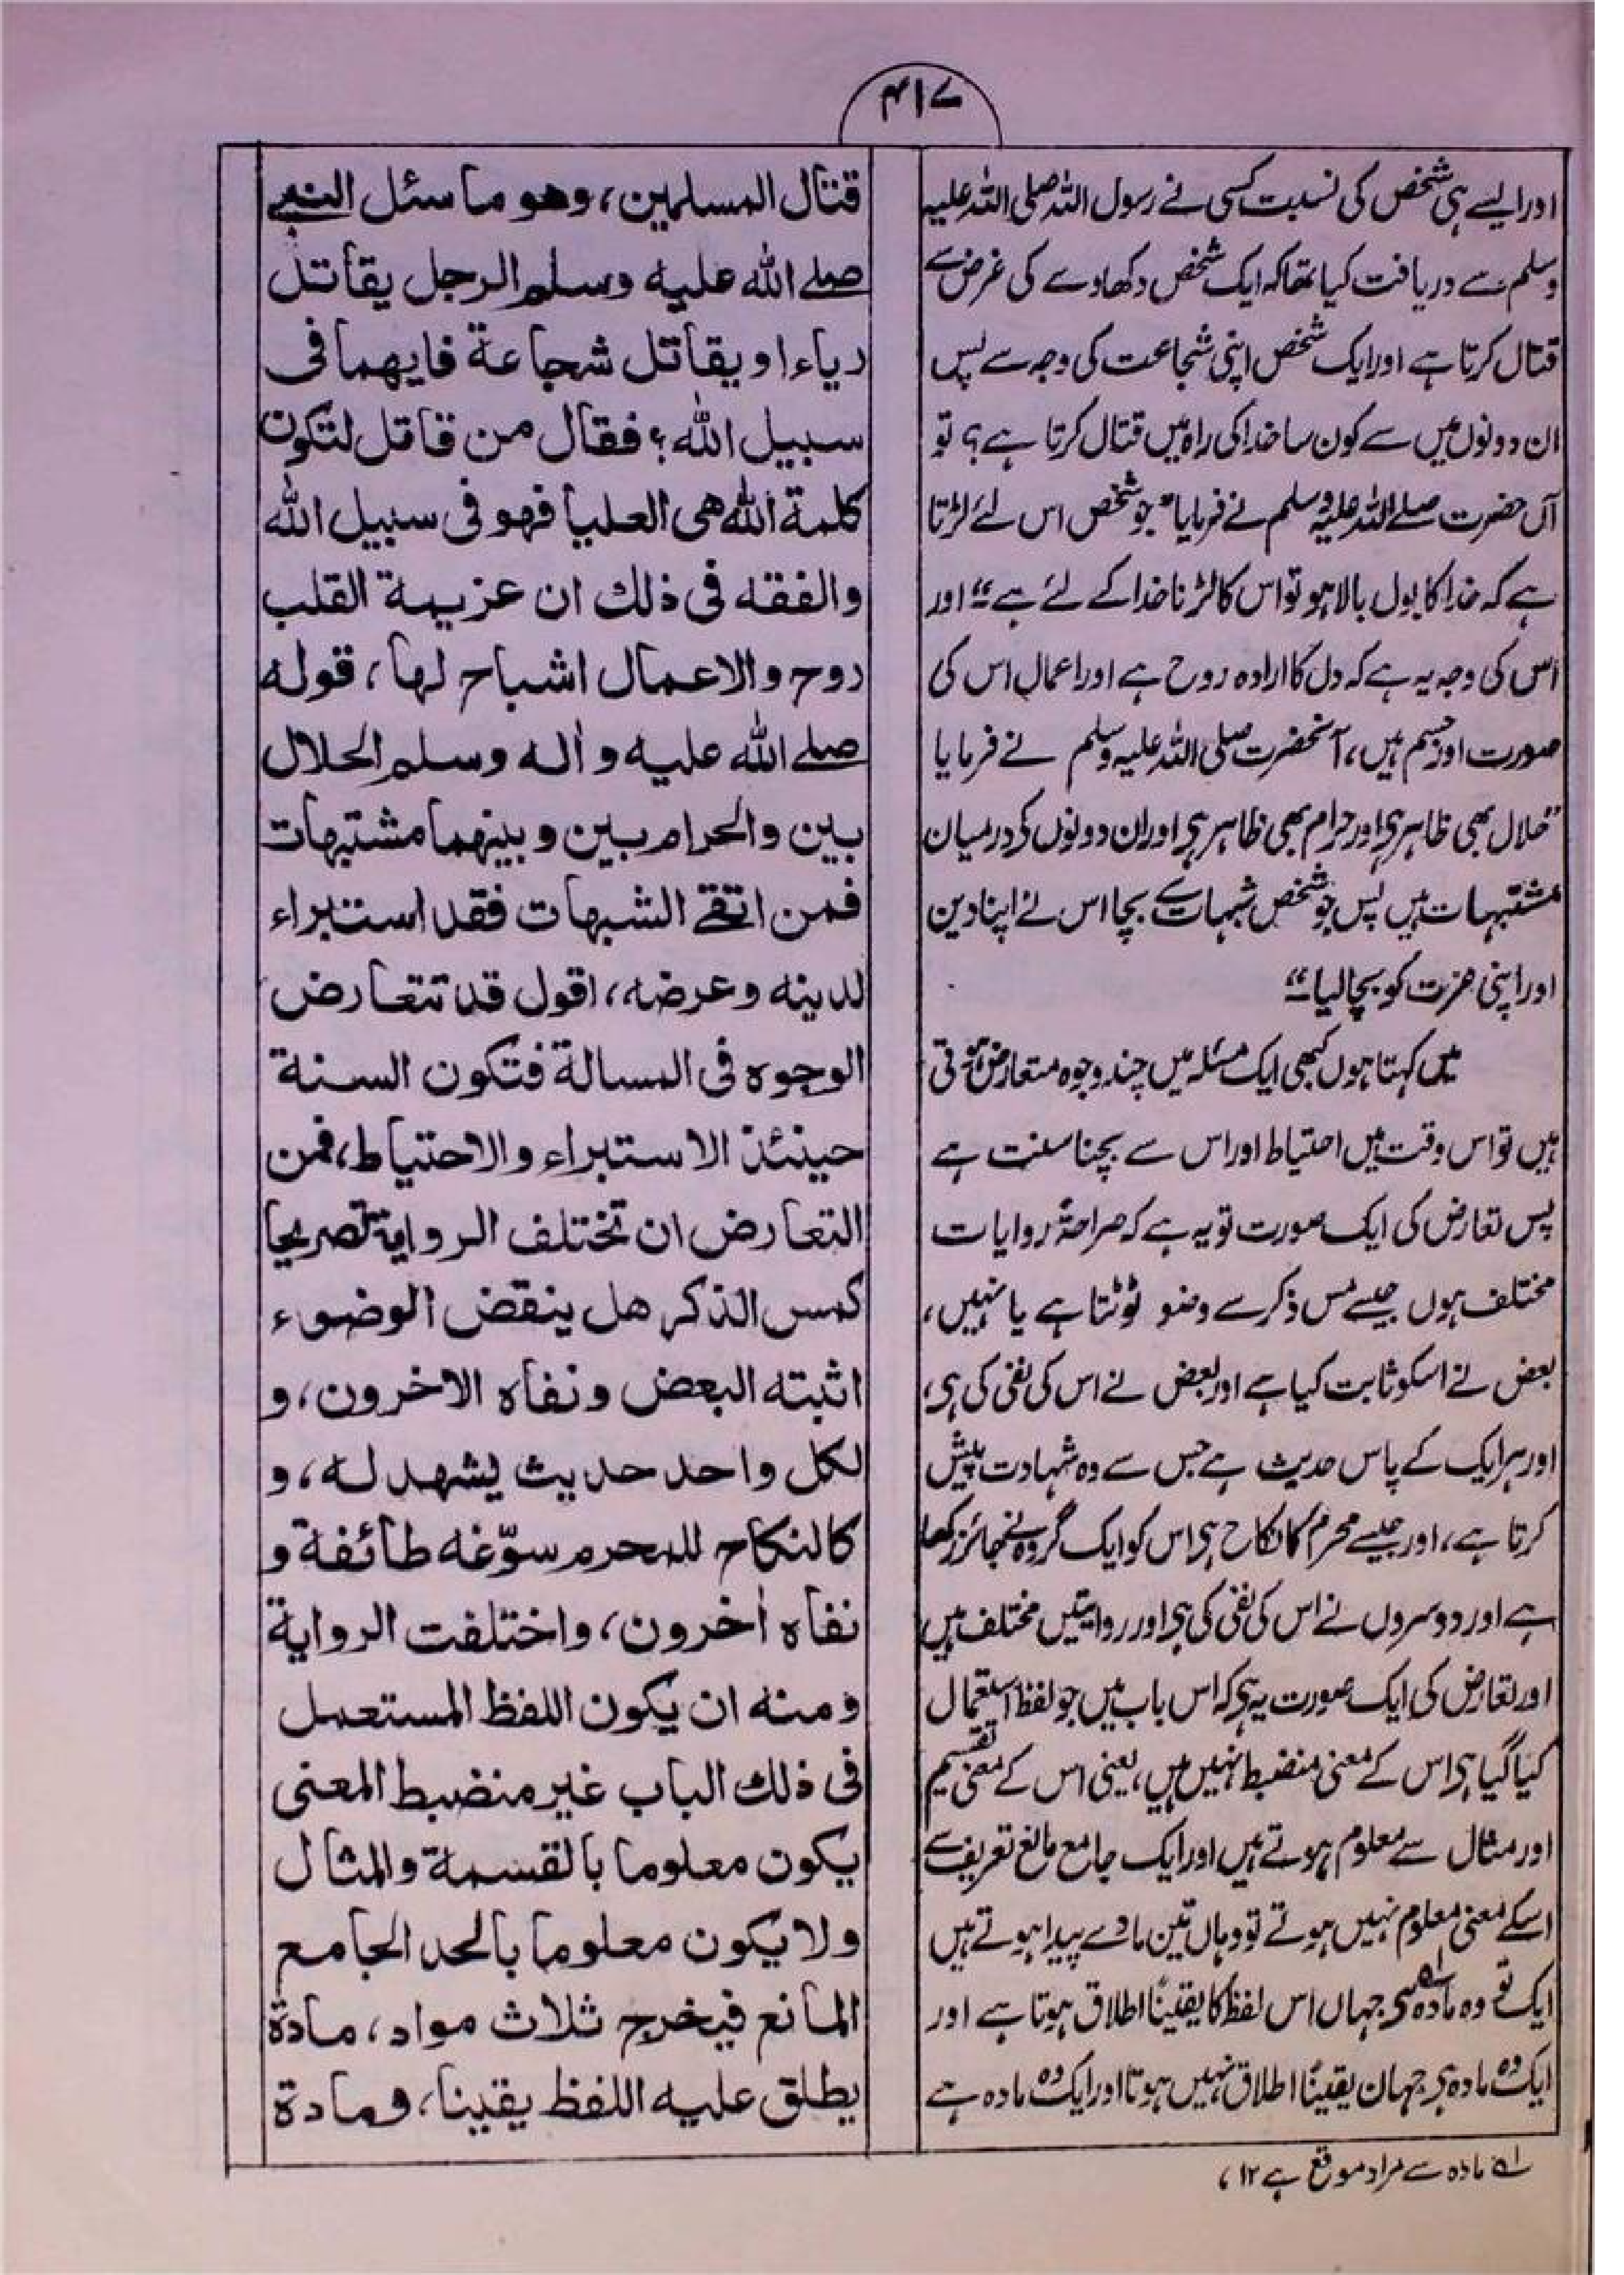 ۴۱۷
اور ایسے ہی شخص کی نسبت کسی نے رسول اللہ صلی اللہ علیہ
وسلم سے دریافت کیا تھا کہ ایک شخص دکھاوے کی غرض سے
قتال کرتا ہے اور ایک شخص اپنی شجاعت کی وجہ سے پس
ان دونوں میں سے کون سا خدا کی راہ میں قتال کرتا ہے؟ تو
آں حضرت صلے اللہ علیہ وسلم نے فرمایا "جو شخص اس لئے لڑتا
ہے کہ خدا کا بول بالا ہو تو اس کا لڑنا خدا کے لئے ہے" اور
اس کی وجہ یہ ہے کہ دل کا ارادہ روح ہے اور اعمال اس کی
صورت اور جسم ہیں، آنحضرت صلی اللہ علیہ وسلم نے فرمایا
"حلال بھی ظاہر ہی اور حرام بھی ظاہر ہی اور ان دونوں کی درمیان
مشتبہات ہیں پس جو شخص شبہات سے بچا اس نے اپنا دین
اور اپنی عزت کو بچا لیا"
میں کہتا ہوں کبھی ایک مسئلہ میں چند وجوہ متعارض ہوتی
ہیں تو اس وقت میں احتیاط اور اس سے بچنا سنت ہے
پس تعارض کی ایک صورت تو یہ ہے کہ صراحۃً روایات
مختلف ہوں جیسے مس ذکر سے وضو ٹوٹتا ہے یا نہیں،
بعض نے اسکو ثابت کیا ہے اور بعض نے اس کی نفی کی ہی،
اور ہر ایک کے پاس حدیث ہے جس سے وہ شہادت پیش
کرتا ہے، اور جیسے محرم کا نکاح ہی اس کو ایک گروہ نے جائز رکھا
ہے اور دوسروں نے اس کی نفی کی ہی اور روایتیں مختلف ہیں
اور تعارض کی ایک صورت یہ ہی کہ اس باب میں جو لفظ استعمال
کیا گیا ہی اس کے معنی منضبط نہیں ہیں، یعنی اس کے معنی تقسیم
اور مثال سے معلوم ہوتے ہیں اور ایک جامع مانع تعریف سے
اسکے معنی معلوم نہیں ہوتے تو وہاں تین مادے پیدا ہوتے ہیں
ایک تو وہ مادہ لہ ہی جہاں اس لفظ کا یقیناً اطلاق ہوتا ہے اور
ایک وہ مادہ ہی جہان یقیناً اطلاق نہیں ہوتا اور ایک وہ مادہ ہے
قتال المسلمین، وهو ما سئل النبی
صلے الله علیه وسلم الرجل یقاتل
ریاء او یقاتل شجاعة فایهما فی
سبیل الله؟ فقال من قاتل لتکون
کلمة الله هی العلیا فهو فی سبیل الله
والفقه فی ذلك ان عزیمة القلب
روح والاعمال اشباح لها، قوله
صلے الله علیه واٰله وسلم الحلال
بین والحرام بین وبینهما مشتبهات
فمن اتقے الشبهات فقد استبراء
لدینه وعرضه، اقول قد تتعارض
الوجوه فی المسالة فتکون السنة
حینئذ الاستبراء والاحتیاط، فمن
التعارض ان تختلف الروایة تصریحا
کمس الذکر هل ینقض الوضوء
اثبته البعض ونفاه الاخرون، و
لکل واحد حدیث یشهد له، و
کالنکاح للمحرم سوّغه طائفة و
نفاه اٰخرون، واختلفت الروایة
ومنه ان یکون اللفظ المستعمل
فی ذلك الباب غیر منضبط المعنی
یکون معلوما بالقسمة والمثال
ولا یکون معلوما بالحد الجامع
المانع فیخرج ثلاث مواد، مادة
یطلق علیه اللفظ یقینا، ومادة
لہ مادہ سے مراد موقع ہے ۱۲،